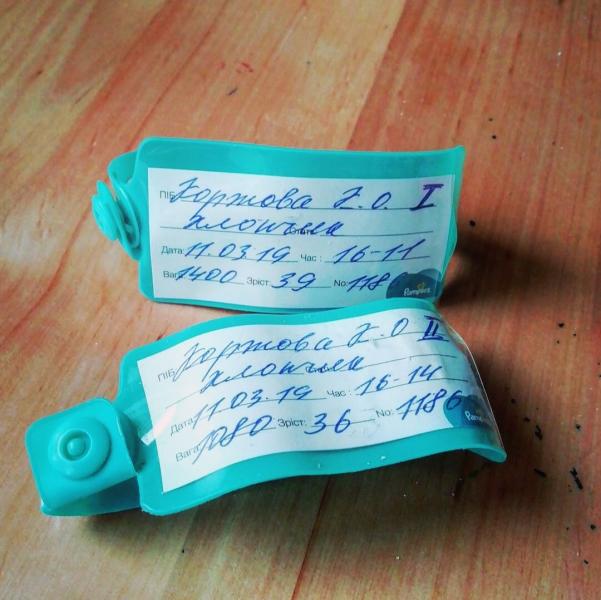 ПІБ Коржова К.О. I
хлопчик
Дата: 11.03.19 Час: 16-11
Вага 1400 Зріст: 39 No: 1186
Pampers
ПІБ Коржова К.О II
хлопчик
Дата 11.03.19 Час: 16-14
Вага 1080 Зріст: 36 No: 1186